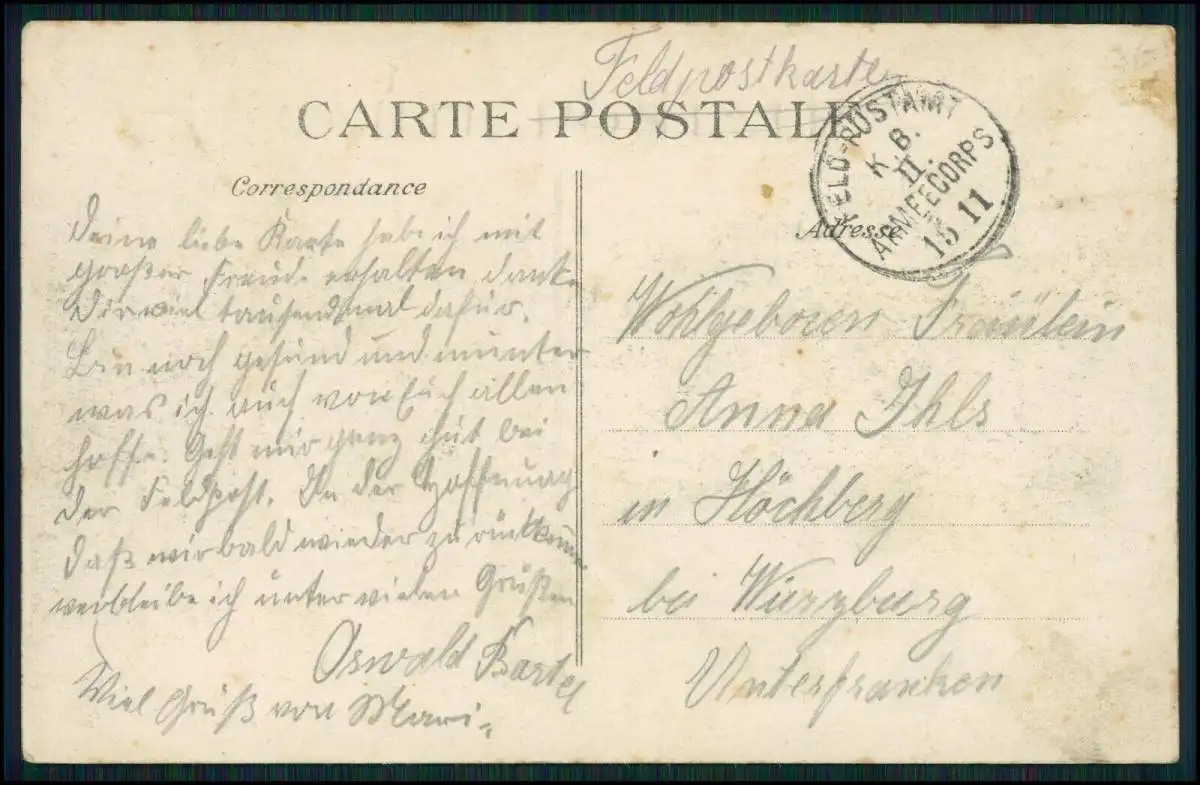 Feldpostkarte
CARTE POSTALE
FELD-POSTAMT
K. B.
II.
ARMEECORPS
15 11
Correspondance
Adresse
Deine liebe Karte habe ich mit
großer Freude erhalten danke
Dir viel tausendmal dafür.
Bin noch gesund und munter
was ich auch von Euch allen
hoffe. Geht mir ganz gut bei
der Feldpost. In der Hoffnung
daß wir bald wieder zurückkommen
verbleibe ich unter vielen Grüßen
Oswald Bartel
Viel Grüß von
Wohlgeboren Fräulein
Anna Ihls
in Höchberg
bei Würzburg
Unterfranken